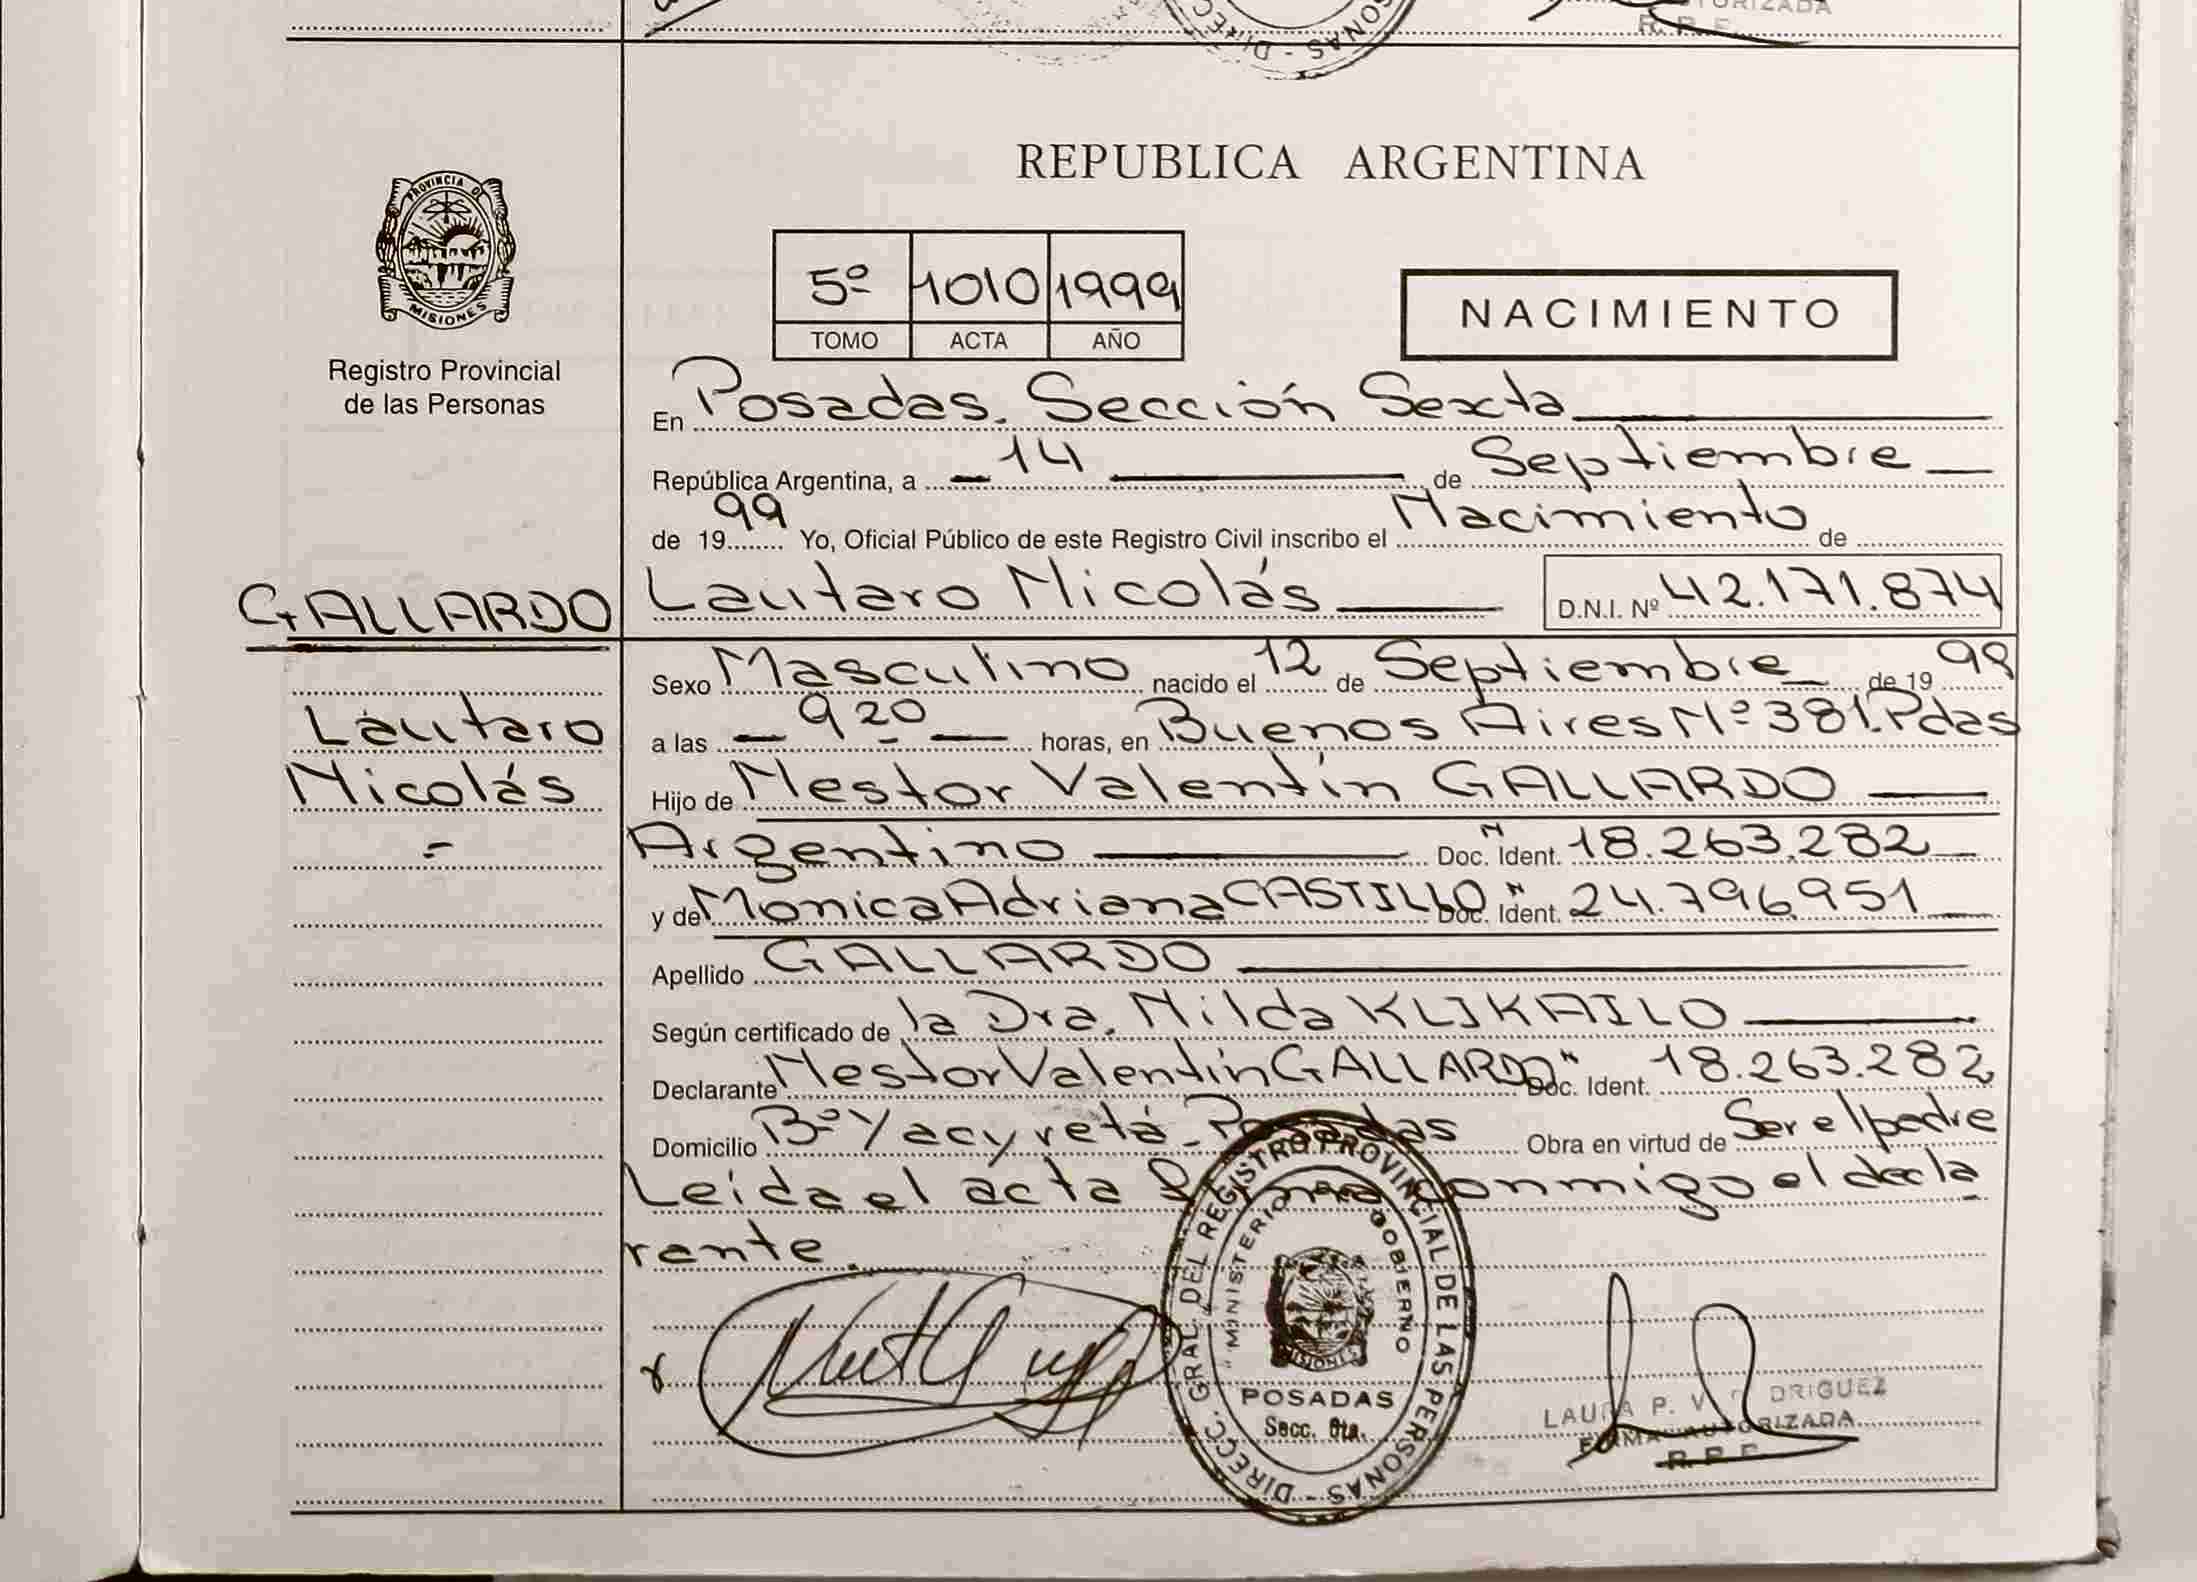 REPUBLICA ARGENTINA
PROVINCIA DE
MISIONES
Registro Provincial
de las Personas
5º 1010 1999
TOMO ACTA AÑO
NACIMIENTO
En Posadas. Sección Sexta
República Argentina, a 14 de Septiembre
de 1999 Yo, Oficial Público de este Registro Civil inscribo el Nacimiento de
GALLARDO
Lautaro Nicolás
D.N.I. Nº 42.171.874
Lautaro
Nicolás
Sexo Masculino nacido el 12 de Septiembre de 1999
a las 9 20 horas, en Buenos Aires Nº 381. Pdas
Hijo de Nestor Valentín GALLARDO
Argentino Doc. Ident. 18.263.282
y de Monica Adriana CASTILLO Doc. Ident. 24.796.951
Apellido GALLARDO
Según certificado de la Dra. Nilda KLIKAILO
Declarante Nestor Valentín GALLARDO Doc. Ident. 18.263.282
Domicilio Bº Yacyretá - Posadas Obra en virtud de Ser el padre
Leída el acta firma conmigo el decla
rante.
DIRECC. GRAL. DEL REGISTRO PROVINCIAL DE LAS PERSONAS
MINISTERIO DE GOBIERNO
MISIONES
POSADAS
Secc. 6ta.
LAURA P. V. DRIGUEZ
FIRMA AUTORIZADA